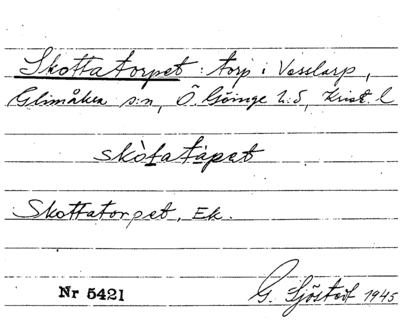 Skottatorpet: torp i Vesslarp,
Glimåkra s:n, Ö. Göinge h:d, Krist. l
skòtatàpet
Skottatorpet, Ek.
Nr 5421 G. Sjöstedt 1945